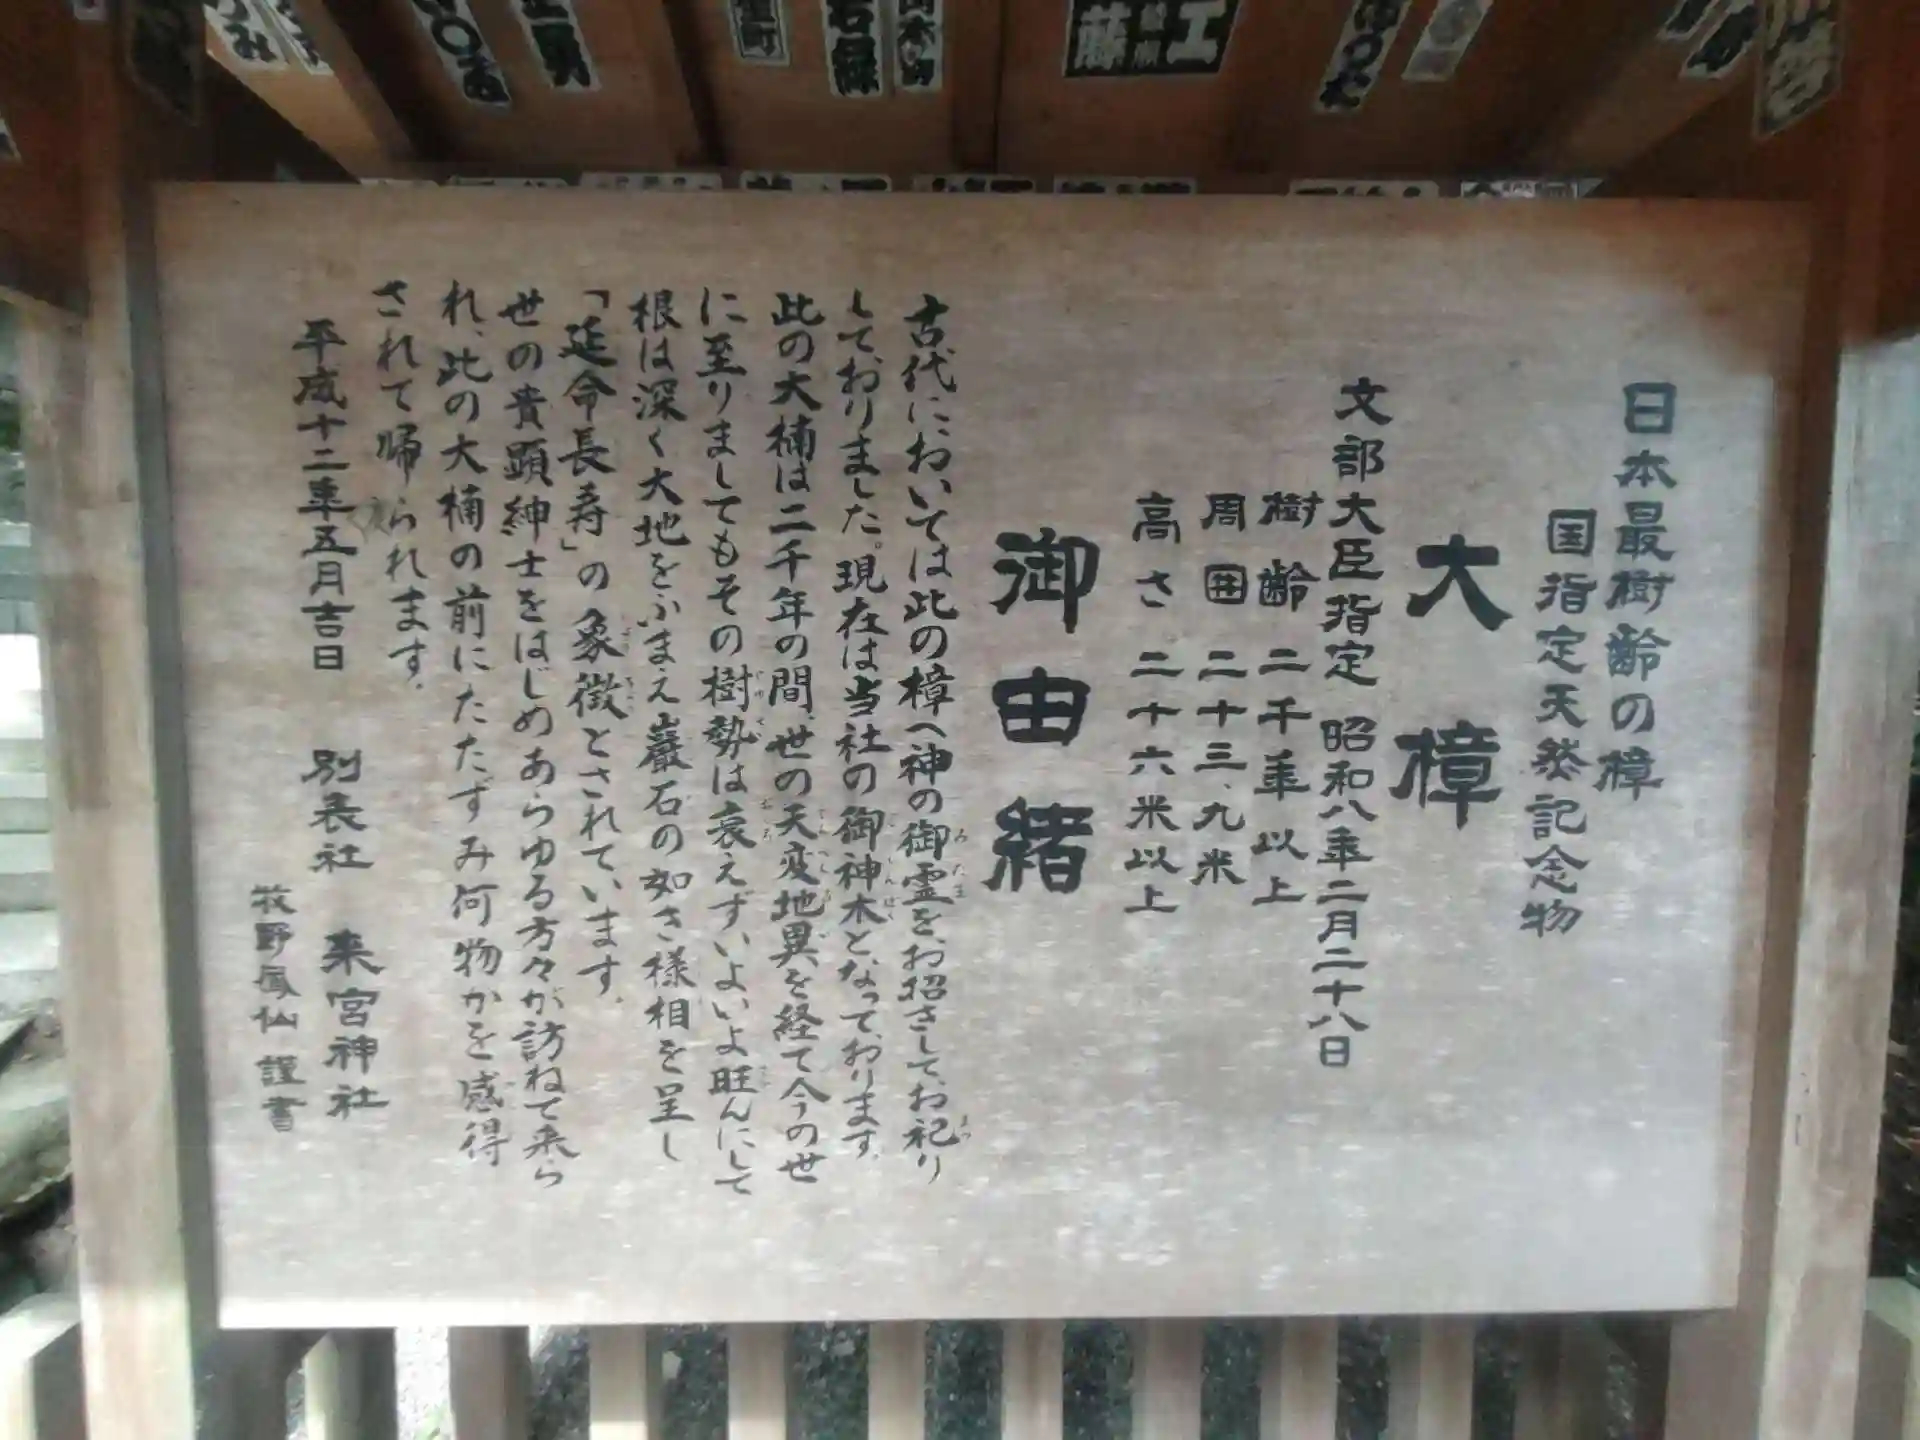 日本最樹齢の樟
国指定天然記念物
大樟
文部大臣指定 昭和八年二月二十八日
樹齢 二千年以上
周囲 二十三、九米
高さ 二十六米以上
御由緒
古代においては此の樟へ神の御霊を、お招きして、お祀り
しておりました。現在は当社の御神木となって、おります。
此の大楠は二千年の間、世の天変地異を経て今の世
に至りましてもその樹勢は衰えずいよいよ旺んにして
根は深く大地をふまえ巖石の如き様相を呈し
「延命長寿」の象徴とされています。
世の貴顕紳士をはじめあらゆる方々が訪ねて来ら
れ、此の大楠の前にたたずみ何物かを感得
されて帰られます。
平成十二年五月吉日 別表社 来宮神社
牧野鳳仙 謹書